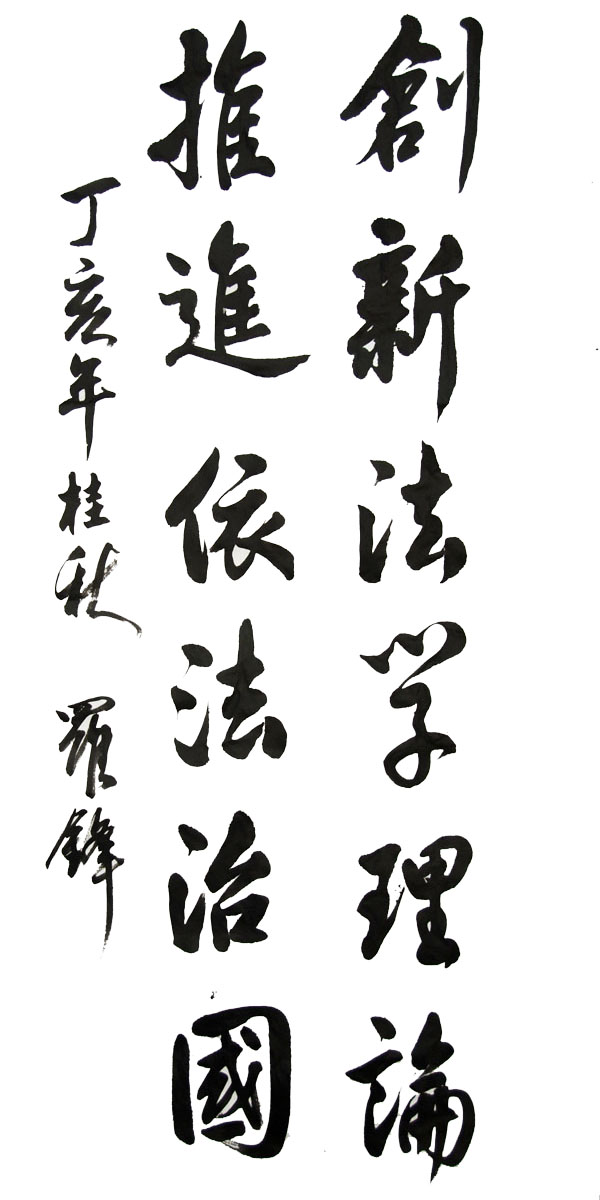 創新法学理論
推進依法治國
丁亥年桂秋 羅鋒